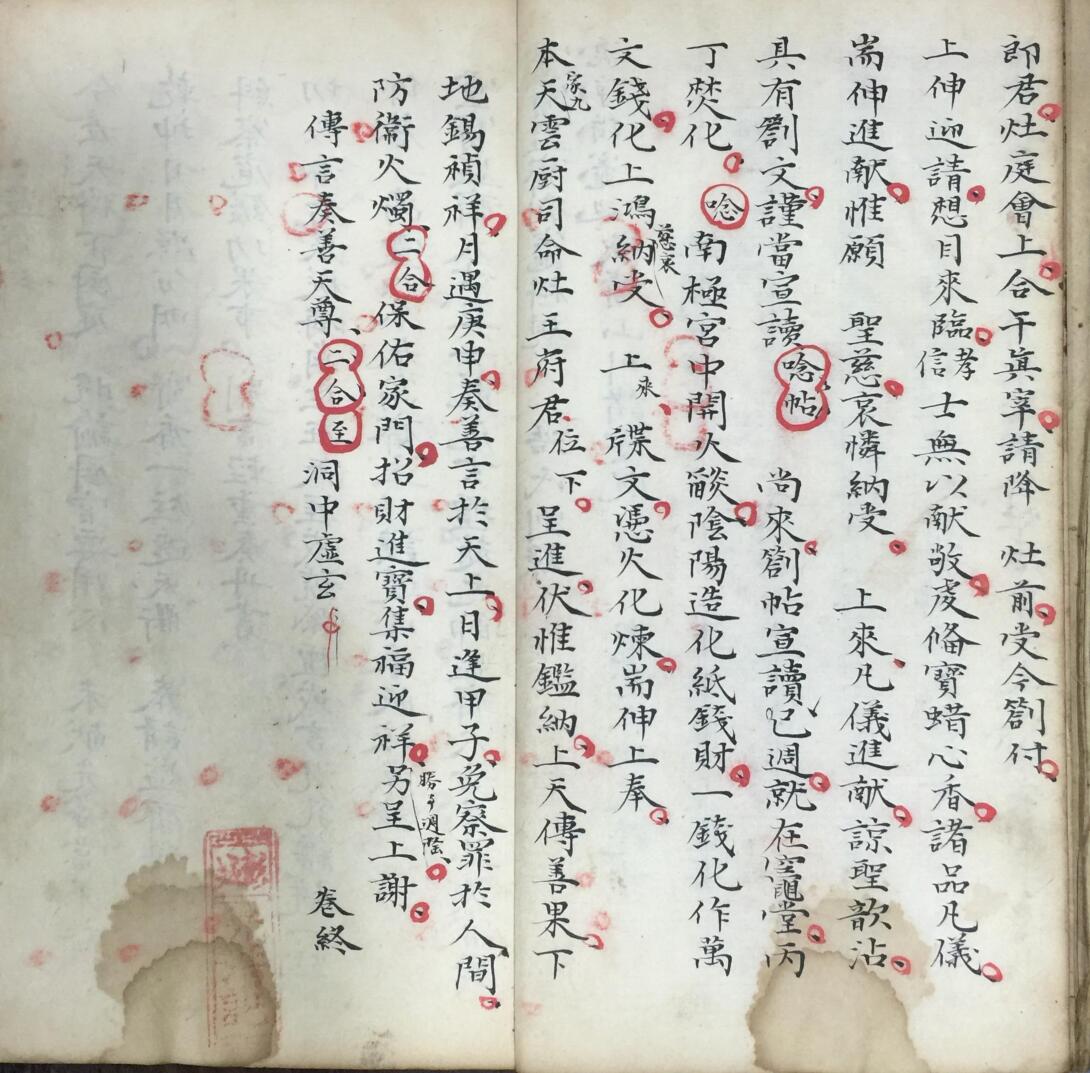 郎君灶庭會上合干真宰請降　灶前受今劄付
上伸迎請想目來臨孝信士無以献敬虔俻寶蜡心香諸品凡儀
耑伸進献惟願　聖慈哀憐納受　上來凡儀進献諒聖歆沾
具有劄文謹當宣讀唸帖　尚來劄帖宣讀已週就在竈堂丙
丁焚化　唸南極宮中開火𦦨陰陽造化紙錢財一錢化作萬
文錢化上鴻慈哀納受　上來牒文憑火化煉耑伸上奉
本天家九雲厨司命灶王府君位下　呈進伏惟鑑納上天傳善果下
地錫禎祥月遇庚申奏善言於天上日逢甲子免察罪於人間
防衞火燭二合保佑家門招財進寶集福迎祥另呈上謝
傳言奏善天尊二合至　洞中虛玄　卷終